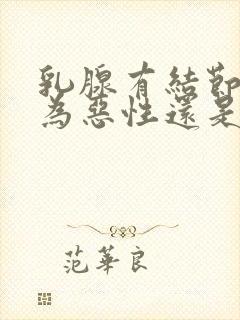 乳腺有結節
為惡性還是
范華良